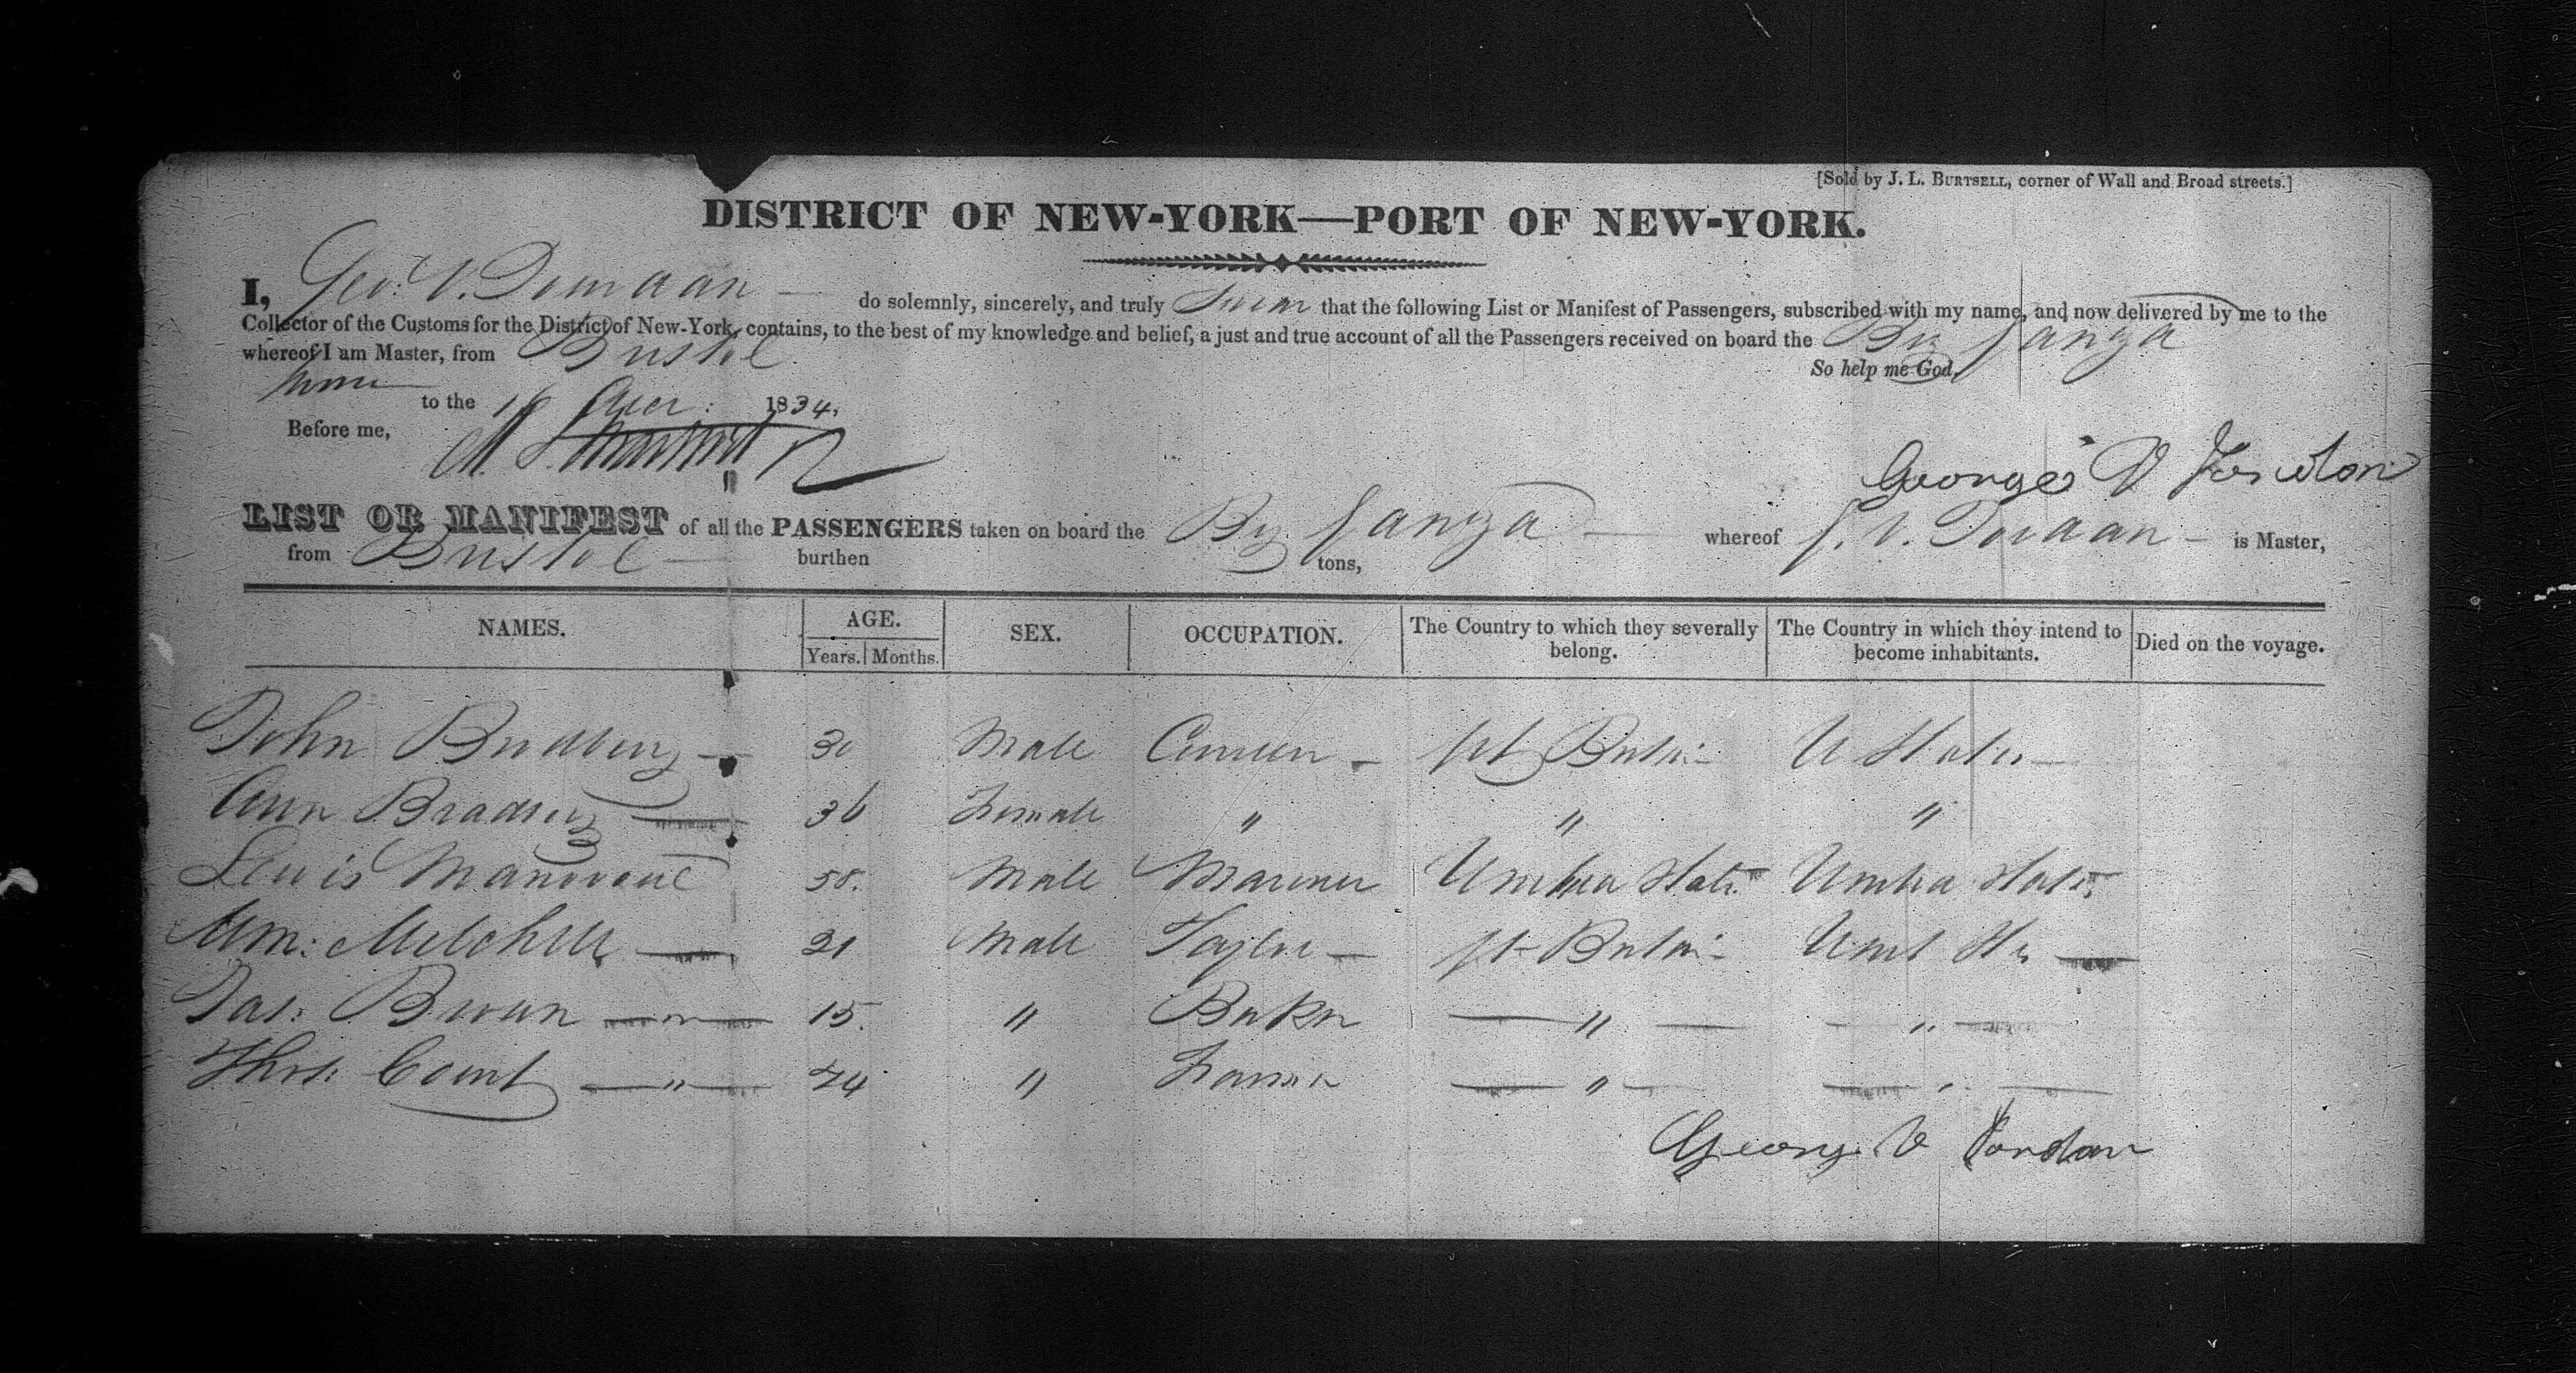 [Sold by J. L. BURTSELL, corner of Wall and Broad streets.]
DISTRICT OF NEW-YORK—PORT OF NEW-YORK.
I, Geo: V. do solemnly, sincerely, and truly Swear that the following List or Manifest of Passengers, subscribed with my name, and now delivered by me to the
Collector of the Customs for the District of New-York, contains, to the best of my knowledge and belief, a just and true account of all the Passengers received on board the Bg Ganza
whereof I am Master, from Bristol
So help me God.
Sworn to the 16 1834.
Before me,
George V Jordan
LIST OR MANIFEST of all the PASSENGERS taken on board the Bg. Ganza — whereof G. V. — is Master,
from Bristol — burthen tons,
NAMES. AGE. SEX. OCCUPATION. The Country to which they severally belong. The Country in which they intend to become inhabitants. Died on the voyage.
Years. Months.
John — 30 Male — Gt Britain U States —
Ann — 36 Female " " "
Lewis 58. Male Mariner United States United States
Wm: Mitchell — 21 Male Taylor — Gt Britain Unit Sts —
Jas: — " — 15. " Baker — " — — " —
Thos: Count — " — 24 " Farmer — " — — " —
George V Jordan